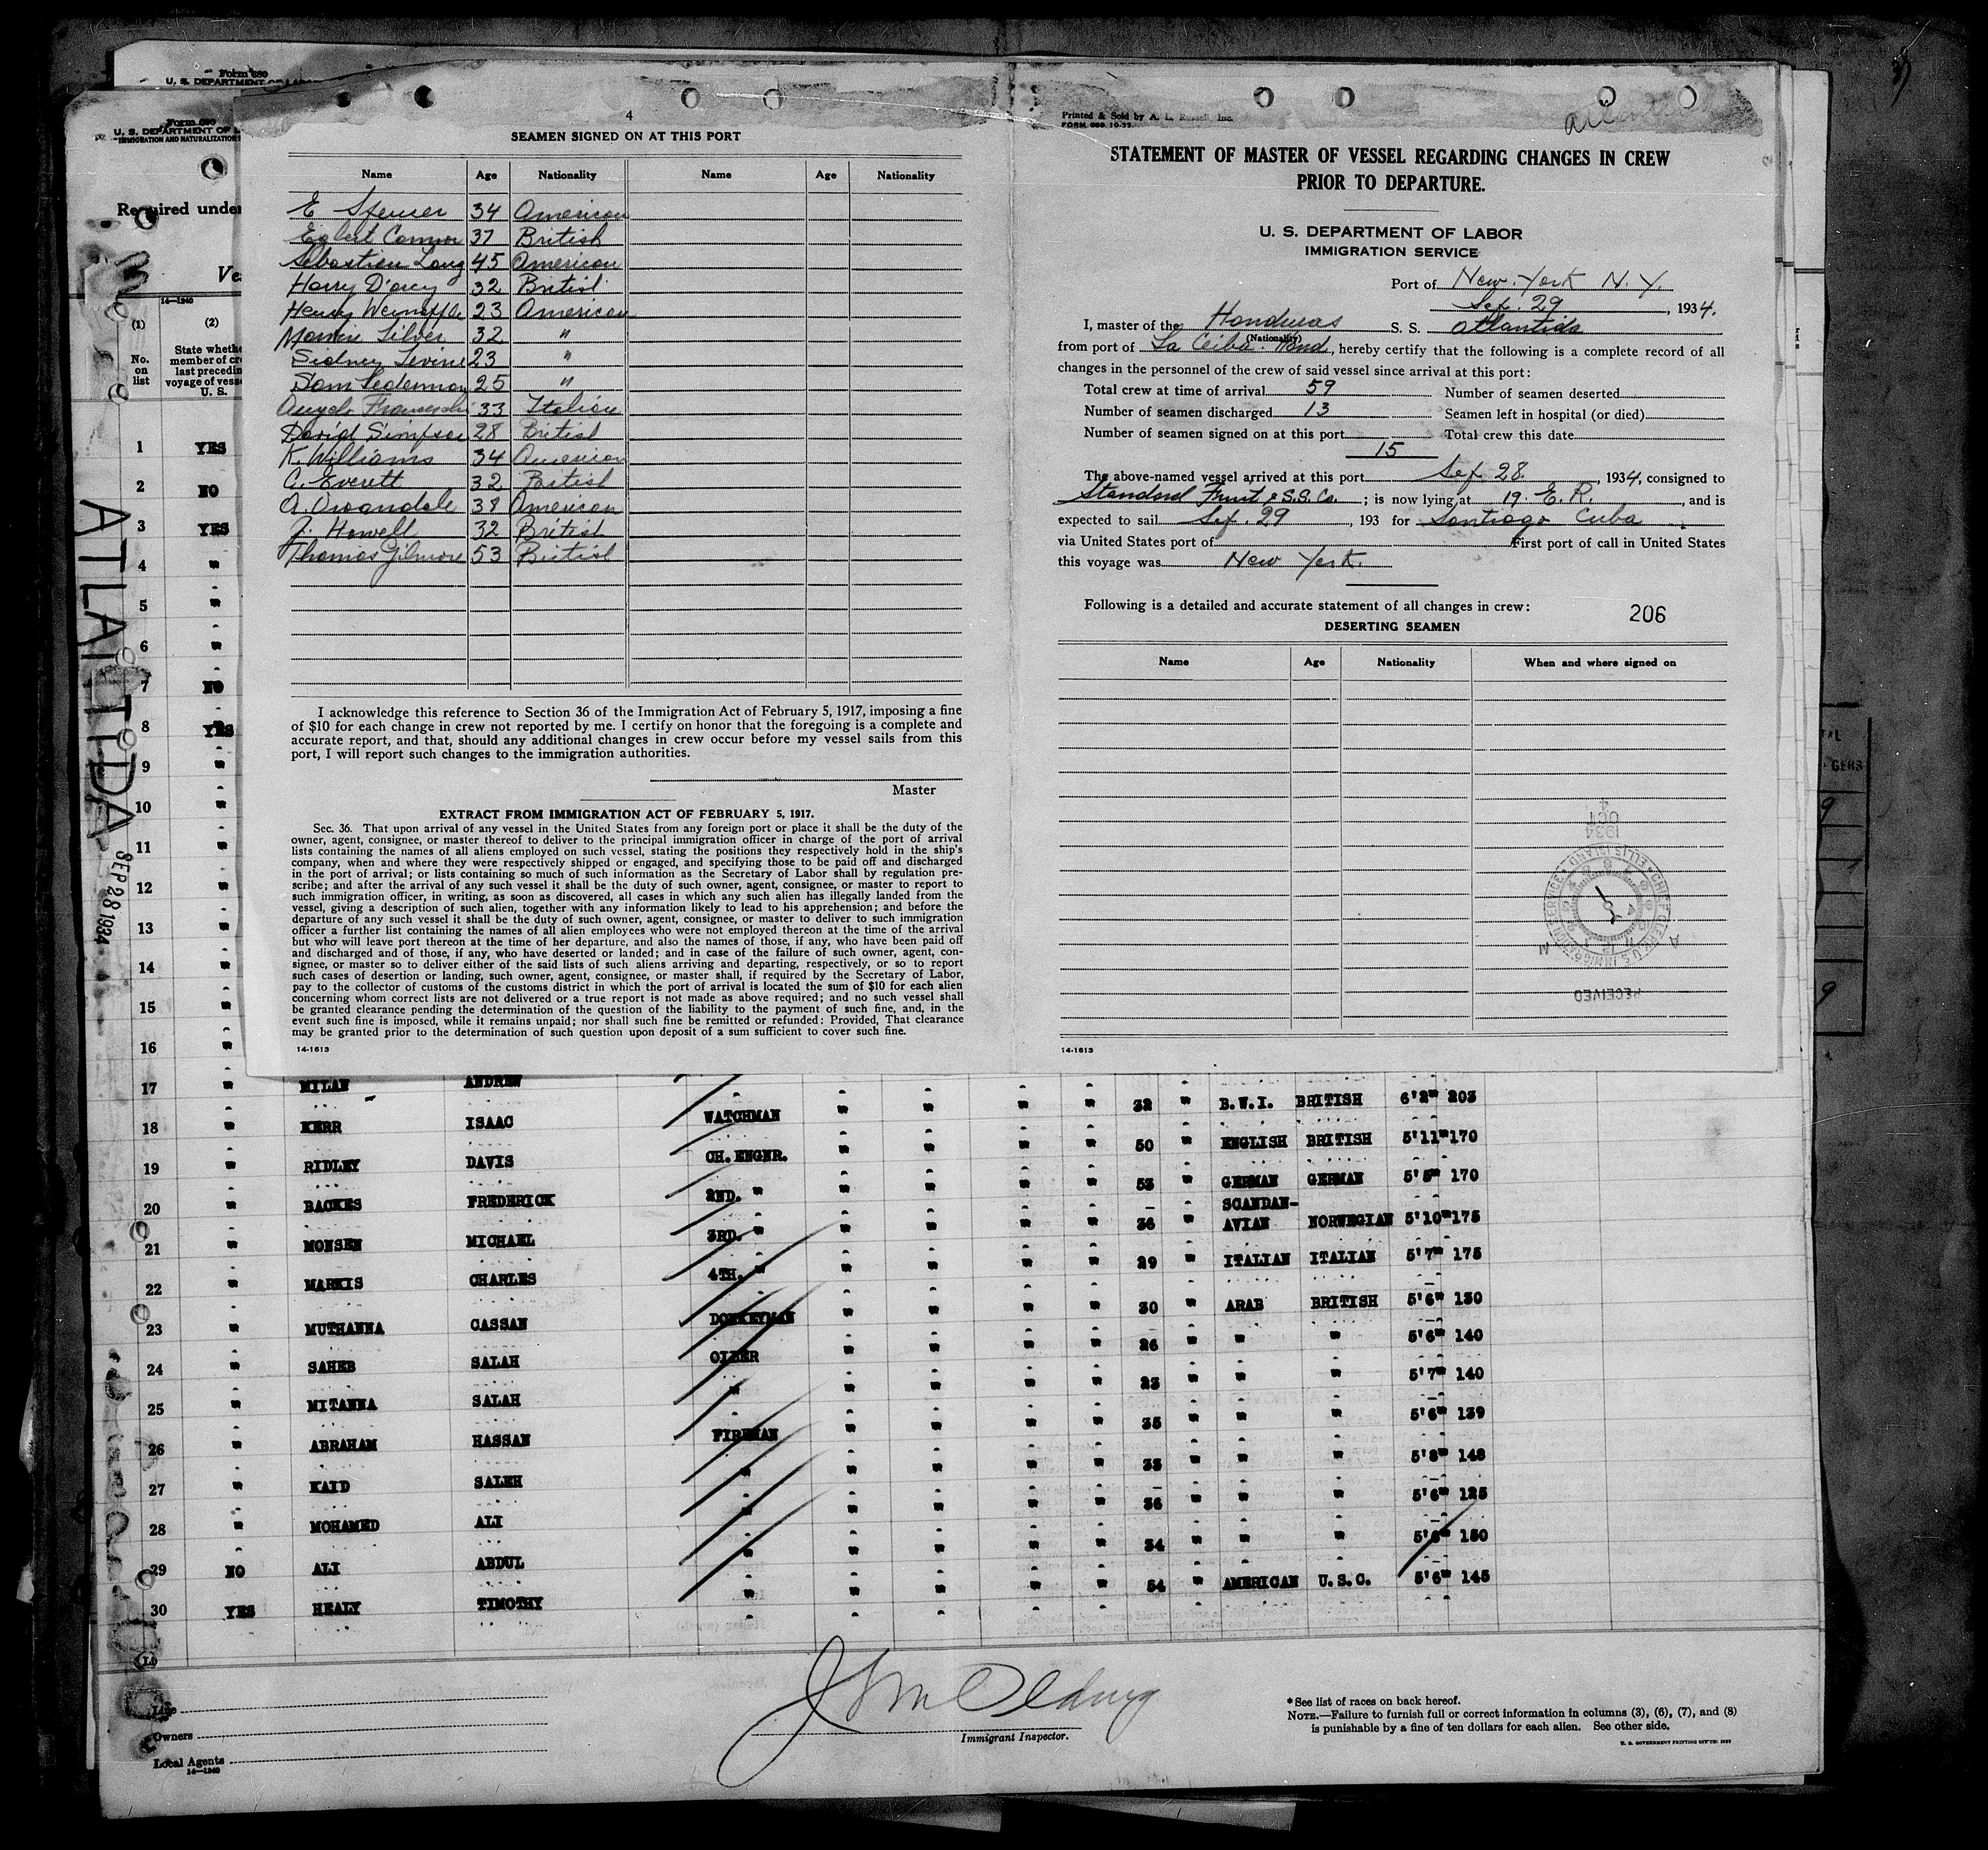 Form 680
U. S. DEPARTMENT OF LABOR
Form 680
U. S. DEPARTMENT OF L
IMMIGRATION AND NATURALIZATION S
Required under
Ve
14—1240
(1)
(2)
No. on list
State whethe
member of cr
last precedin
voyage of vesse
U. S.
ATLANTIDA
SEP 28 1934
1 YES
2 NO
3 YES
4 "
5 "
6 "
7 NO
8 YES
9 "
10 "
11 "
12 "
13 "
14 "
15 "
16 "
4
SEAMEN SIGNED ON AT THIS PORT
Name Age Nationality Name Age Nationality
E Spencer 34 American
Egbert Connor 37 British
Sebastien Long 45 American
Harry D'arcy 32 British
Henry 23 American
Morris Silver 32 "
Sidney Levine 23 "
Sam Lederman 25 "
Angelo Franceschi 33 Italian
David Simpson 28 British
K. Williams 34 American
C. Everett 32 British
A. 38 American
J. Howell 32 British
Thomas Gilmore 53 British
I acknowledge this reference to Section 36 of the Immigration Act of February 5, 1917, imposing a fine
of $10 for each change in crew not reported by me. I certify on honor that the foregoing is a complete and
accurate report, and that, should any additional changes in crew occur before my vessel sails from this
port, I will report such changes to the immigration authorities.
Master
EXTRACT FROM IMMIGRATION ACT OF FEBRUARY 5, 1917.
Sec. 36. That upon arrival of any vessel in the United States from any foreign port or place it shall be the duty of the
owner, agent, consignee, or master thereof to deliver to the principal immigration officer in charge of the port of arrival
lists containing the names of all aliens employed on such vessel, stating the positions they respectively hold in the ship's
company, when and where they were respectively shipped or engaged, and specifying those to be paid off and discharged
in the port of arrival; or lists containing so much of such information as the Secretary of Labor shall by regulation pre-
scribe; and after the arrival of any such vessel it shall be the duty of such owner, agent, consignee, or master to report to
such immigration officer, in writing, as soon as discovered, all cases in which any such alien has illegally landed from the
vessel, giving a description of such alien, together with any information likely to lead to his apprehension; and before the
departure of any such vessel it shall be the duty of such owner, agent, consignee, or master to deliver to such immigration
officer a further list containing the names of all alien employees who were not employed thereon at the time of the arrival
but who will leave port thereon at the time of her departure, and also the names of those, if any, who have been paid off
and discharged and of those, if any, who have deserted or landed; and in case of the failure of such owner, agent, con-
signee, or master so to deliver either of the said lists of such aliens arriving and departing, respectively, or so to report
such cases of desertion or landing, such owner, agent, consignee, or master shall, if required by the Secretary of Labor,
pay to the collector of customs of the customs district in which the port of arrival is located the sum of $10 for each alien
concerning whom correct lists are not delivered or a true report is not made as above required; and no such vessel shall
be granted clearance pending the determination of the question of the liability to the payment of such fine, and, in the
event such fine is imposed, while it remains unpaid; nor shall such fine be remitted or refunded: Provided, That clearance
may be granted prior to the determination of such question upon deposit of a sum sufficient to cover such fine.
14-1613
Printed & Sold by A. L. Russell, Inc.
FORM 689 10-33
STATEMENT OF MASTER OF VESSEL REGARDING CHANGES IN CREW
PRIOR TO DEPARTURE.
U. S. DEPARTMENT OF LABOR
IMMIGRATION SERVICE
Port of New York N. Y.
Sep. 29, 1934.
I, master of the Honduras S. S. Atlantida
(Nationality)
from port of La Ceiba. Hond, hereby certify that the following is a complete record of all
changes in the personnel of the crew of said vessel since arrival at this port:
Total crew at time of arrival 59 Number of seamen deserted
Number of seamen discharged 13 Seamen left in hospital (or died)
Number of seamen signed on at this port 15 Total crew this date
The above-named vessel arrived at this port Sep. 28, 1934, consigned to
Standard Fruit & S.S. Co.; is now lying at 19. E. R., and is
expected to sail Sep. 29, 193 for Santiago Cuba
via United States port of First port of call in United States
this voyage was New York.
Following is a detailed and accurate statement of all changes in crew:
206
DESERTING SEAMEN
Name Age Nationality When and where signed on
1934
OCT
4
CHIEF CLERK U.S. IMMIGRATION SERVICE ELLIS ISLAND
A M
RECEIVED
14-1613
17 " MILAN ANDREW
WATCHMAN " " " " 32 " B.W.I. BRITISH 6'2" 203
18 " KERR ISAAC
CH. ENGNR. " " " " 50 " ENGLISH BRITISH 5'11" 170
19 " RIDLEY DAVIS
2ND. " " " " " 53 " GERMAN GERMAN 5'5" 170
20 " BACKES FREDERICK
3RD. " " " " " 36 " SCANDAN-AVIAN NORWEGIAN 5'10" 175
21 " MONSEN MICHAEL
4TH. " " " " " 29 " ITALIAN ITALIAN 5'7" 175
22 " MARKIS CHARLES
DONKEYMAN " " " " 30 " ARAB BRITISH 5'6" 130
23 " MUTHANNA CASSAN
OILER " " " " 26 " " " 5'6" 140
24 " SAHEB SALAH
" " " " " 23 " " " 5'7" 140
25 " MITANNA SALAH
FIREMAN " " " " 35 " " " 5'6" 139
26 " ABRAHAM HASSAN
" " " " " 33 " " " 5'8" 148
27 " KAID SALEH
" " " " " 36 " " " 5'6" 125
28 " MOHAMED ALI
" " " " " 34 " " " 5'6" 150
29 NO ALI ABDUL
" " " " " 54 " AMERICAN U.S.C. 5'6" 145
30 YES HEALY TIMOTHY
Line
Owners
Local Agents
14—1240
Immigrant Inspector.
*See list of races on back hereof.
NOTE.—Failure to furnish full or correct information in columns (3), (6), (7), and (8)
is punishable by a fine of ten dollars for each alien. See other side.
U. S. GOVERNMENT PRINTING OFFICE: 1933